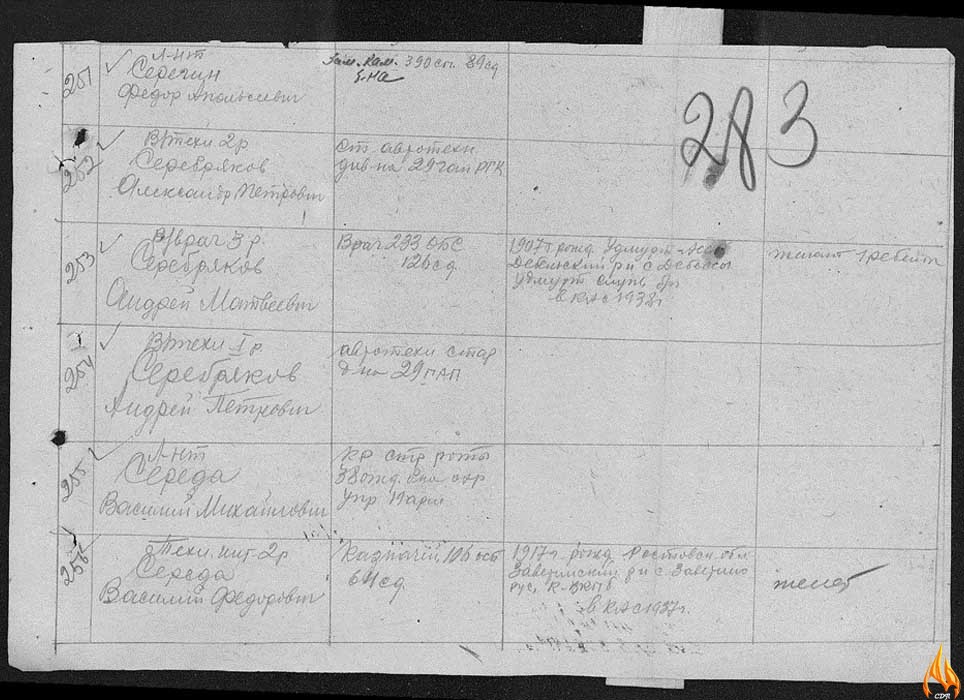 283
251
Л-нт
Серегин
Федор
Зам. Ком. 390 сп. 89 сд
252
В/техн 2 р
Серебряков
Александр Петрович
ст автотехн
див-на 29 РГК
253
В/врач 3 р.
Серебряков
Андрей Матвеевич
Врач 233 ОБС
126 сд
1907 г рожд Удмурт
с Дебессы
Удмурт служ
в КА с 1938 г
женат 1 ребенок
254
В/техн I р
Серебряков
Андрей Петрович
автотехн стар
д-на 29 ПАП
255
Л-нт
Середа
Василий Михайлович
стр роты
38 отд
Упр
256
Техн. инт. 2 р
Середа
Василий Федорович
Казначей, 106
64 сд.
1917 г. рожд Ростовск. обл
Заветинский р-н с. Заветное
рус, К-ВКПб
в КА с 1937 г.
женат
CDR